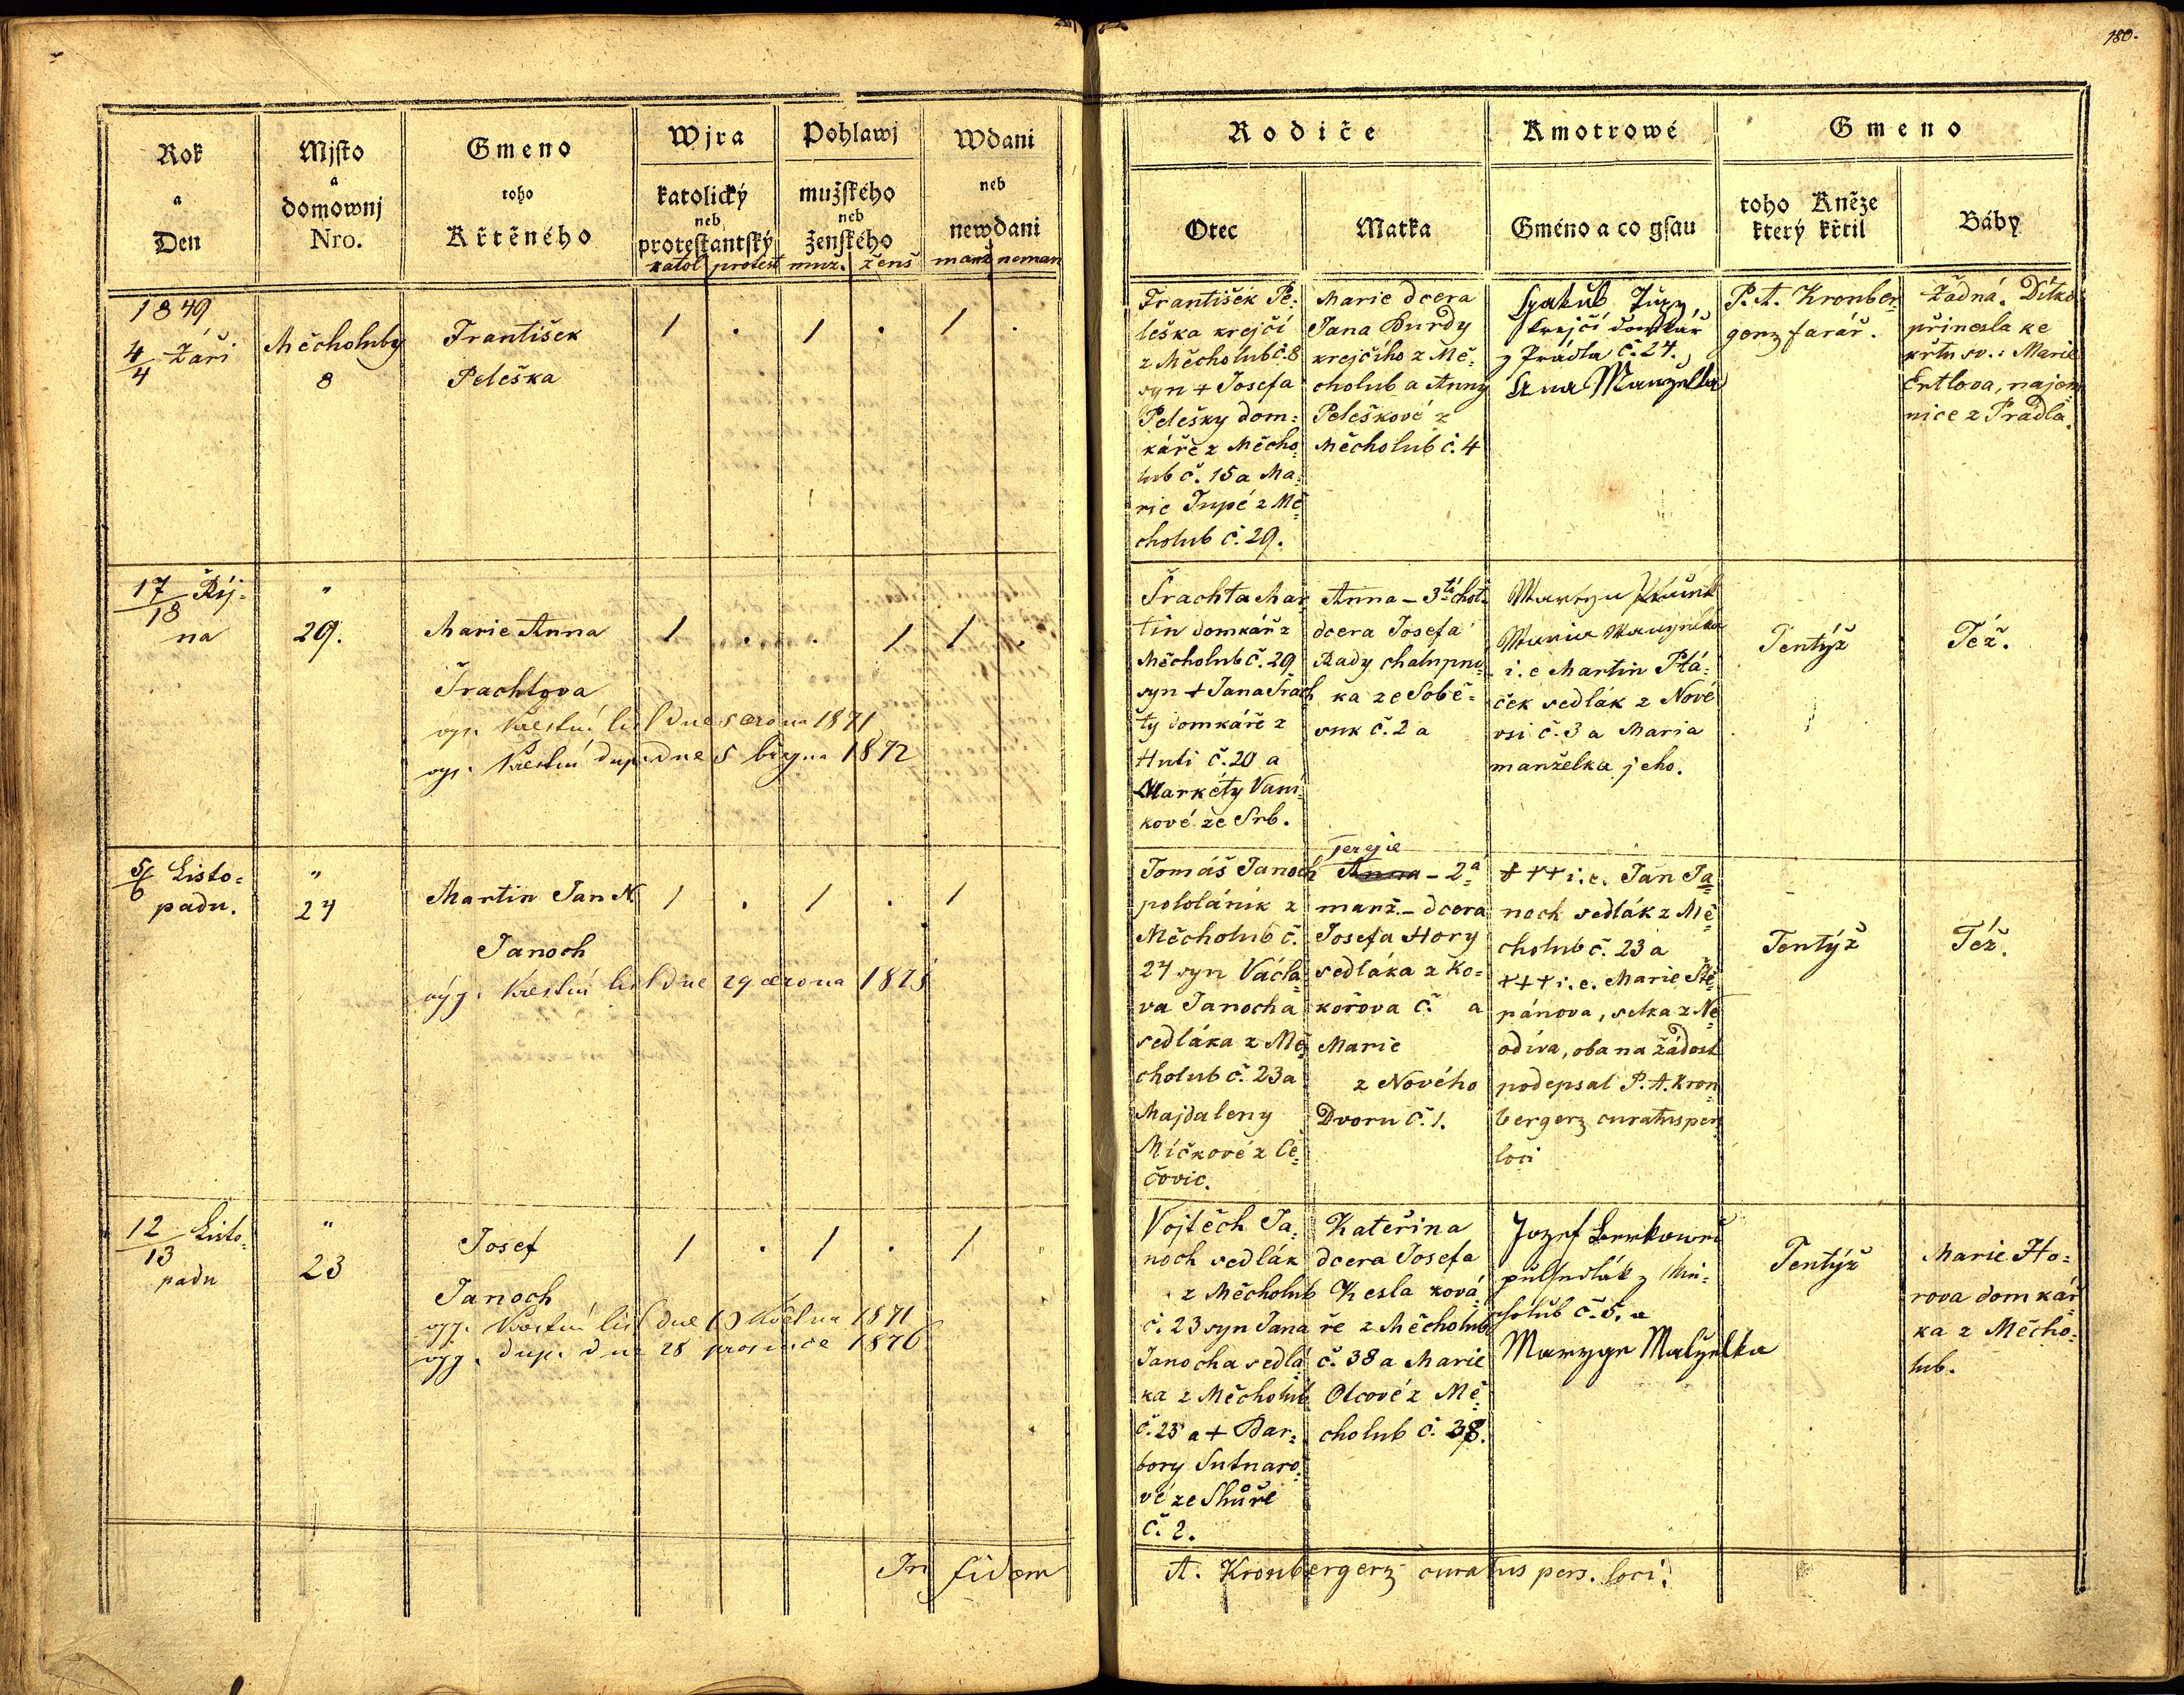 180.
Rok
a
Den
Mjsto
a
domownj
Nro.
Gmeno
toho
Křtěného
Wjra
katolický
neb
protestantský
katol protest
Pohlawj
mužského
neb
ženského
muž. ženš
Wdani
neb
newdani
manž neman
Rodiče
Otec
Matka
Kmotrowé
Gméno a co gsau
Gmeno
toho Kněze
který křtil
Báby
1849
4/4 Září
Měcholuby
8
František
Peleška
1 . 1 . 1 .
František Pe:
leška krejčí
z Měcholub č. 8
syn + Josefa
Pelešky dom:
káře z Měcho
lub č. 15 a Ma:
rie Tupé z Mě
cholub č. 29.
Marie dcera
Jana Burdy
krejčího z Mě:
cholub a Anny
Peleškové z
Měcholub č. 4
Gjakub Tupy
krejčí domkář
z Prádla č. 24.
Ana Manzelka
P. A. Kronber
gerz farář.
Žádná. Dítko
přinesla ke
křtu sv.: Marie
Ertlova, najem
nice z Prádla.
17/18 Říj:
na
"
29.
Marie Anna
Šrachtova
vyj. křestní list dne srpna 1871
vyj. křestní dup. dne 5 března 1872
1 . . 1 1 .
Šrachta Mar
tin domkář z
Měcholub č. 29
syn + Jana Šrach
ty domkáře z
Huti č. 20 a
Markéty Vaní
kové ze Srb.
Anna - 3tí chot.
dcera Josefa
Rady chalupní
ka ze Sobě-
suk č. 2 a
Martyn
Maria
i. e Martin Ptá:
ček sedlák z Nové
vsi č. 3 a Maria
manželka jeho.
Tentýž
Též.
5/6 Listo:
padu.
"
24
Martin Jan N.
Janoch
výj. křestní list dne 29 června 1875
1 . 1 . 1
Tomáš Janoch
pololáník z
Měcholub č.
24 syn Václa
va Janocha
sedláka z Mě
cholub č. 23 a
Majdaleny
Míčkové z Če
čovic.
Terezie
Anna - 2á
manž. - dcera
Josefa Hory
sedláka z Ko-
kořova č. a
Marie
z Nového
Dvoru č. 1.
+++ i. e. Jan Ja
noch sedlák z Mě
cholub č. 23 a
+++ i. e. Marie Ště
pánova, selka z Ne
odíva, oba na žádost
podepsal P. A. Kron
bergerz curatus pers
loci
Tentýž
Též.
12/13 Listo:
padu
"
23
Josef
Janoch
vyj. křestní list dne 10 května 1871
vyj. dup. dne 28 prosince 1876
1 . 1 . 1 "
Vojtěch Ja
noch sedlák
z Měcholub
č. 23 syn Jana
Janocha sedlá
ka z Měcholub
č. 23 a + Bar:
bory Sutnaro
vé ze Skůře
č. 2.
Kateřina
dcera Josefa
Kesla ková
ře z Měcholub
č. 38 a Marie
Olcové z Mě
cholub č. 38.
Jozef
půlsedlák z Mě:
cholub č. 5. a
Maryge Malzelka
Tentýž
Marie Ho:
rova domkář
ka z Měcho:
lub.
In fidem
A. Kronbergerz curatus pers. loci.